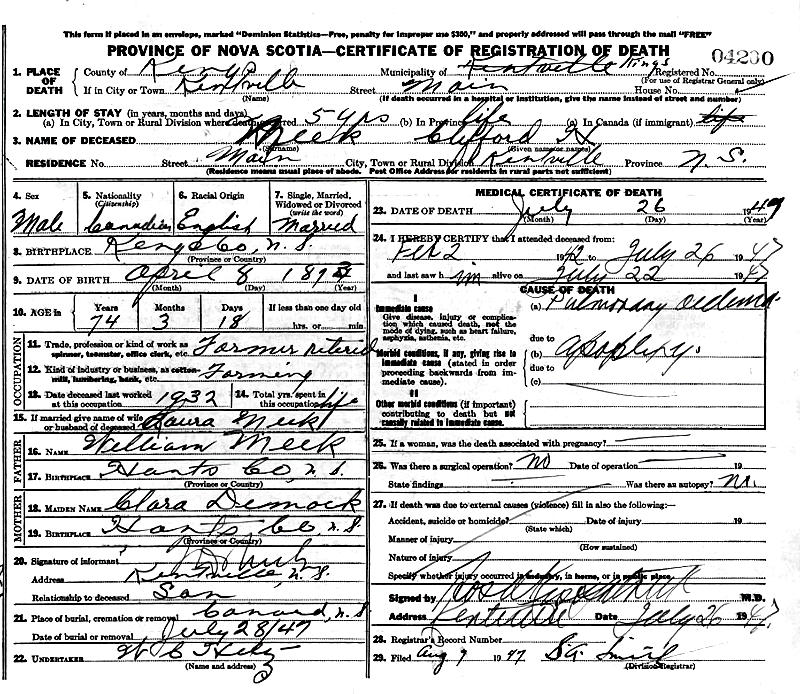 This form if placed in an envelope, marked "Dominion Statistics—Free, penalty for improper use $300," and properly addressed will pass through the mail "FREE"
PROVINCE OF NOVA SCOTIA—CERTIFICATE OF REGISTRATION OF DEATH
04230
1. PLACE OF DEATH
County of Kings Municipality of Kentville Kings Registered No.
(For use of Registrar General only)
If in City or Town Kentville Street Main House No.
(Name) (If death occurred in a hospital or institution, give the name instead of street and number)
2. LENGTH OF STAY (in years, months and days)
(a) In City, Town or Rural Division where death occurred 5 yrs (b) In Province life (c) In Canada (if immigrant) life
3. NAME OF DECEASED Meek Clifford H
(Surname) (Given name or names)
RESIDENCE No. Street Main City, Town or Rural Division Kentville Province N.S.
(Residence means usual place of abode. Post Office Address for residents in rural parts not sufficient)
4. Sex Male
5. Nationality (Citizenship) Canadian
6. Racial Origin English
7. Single, Married, Widowed or Divorced (write the word) Married
8. BIRTHPLACE Kings Co, N.S.
(Province or Country)
9. DATE OF BIRTH April 8 1873
(Month) (Day) (Year)
10. AGE in Years Months Days If less than one day old
74 3 18 hrs. or min.
OCCUPATION
11. Trade, profession or kind of work as spinner, teamster, office clerk, etc. Farmer retired
12. Kind of industry or business, as cotton-mill, lumbering, bank, etc. Farming
13. Date deceased last worked at this occupation 1932
14. Total yrs. spent in this occupation life
15. If married give name of wife or husband of deceased Laura Meek
FATHER
16. NAME William Meek
17. BIRTHPLACE Hants Co, N.S.
(Province or Country)
MOTHER
18. MAIDEN NAME Clara Dimock
19. BIRTHPLACE Hants Co N.S.
(Province or Country)
20. Signature of informant
Address Kentville, N.S.
Relationship to deceased Son
21. Place of burial, cremation or removal Canard, N.S.
Date of burial or removal July 28/47
22. UNDERTAKER W C
(Name and address)
MEDICAL CERTIFICATE OF DEATH
23. DATE OF DEATH July 26 1947
(Month) (Day) (Year)
24. I HEREBY CERTIFY that I attended deceased from:
Feb 2 1942 to July 26 1947
and last saw him alive on July 22 1947
CAUSE OF DEATH
I
Immediate cause
Give disease, injury or complication which caused death, not the mode of dying, such as heart failure, asphyxia, asthenia, etc.
(a) Pulmonary oedema
due to
Morbid conditions, if any, giving rise to immediate cause (stated in order proceeding backwards from immediate cause)
(b) apoplexy.
due to
(c)
II
Other morbid conditions (if important) contributing to death but not causally related to immediate cause.
25. If a woman, was the death associated with pregnancy?
26. Was there a surgical operation? no Date of operation 19
State findings Was there an autopsy? no.
27. If death was due to external causes (violence) fill in also the following:—
Accident, suicide or homicide? Date of injury 19
(State which)
Manner of injury
(How sustained)
Nature of injury
Specify whether injury occurred in industry, in home, or in public place
Signed by M.D.
Address Kentville Date July 26 1947
28. Registrar's Record Number
29. Filed Aug 9 1947
(Division Registrar)